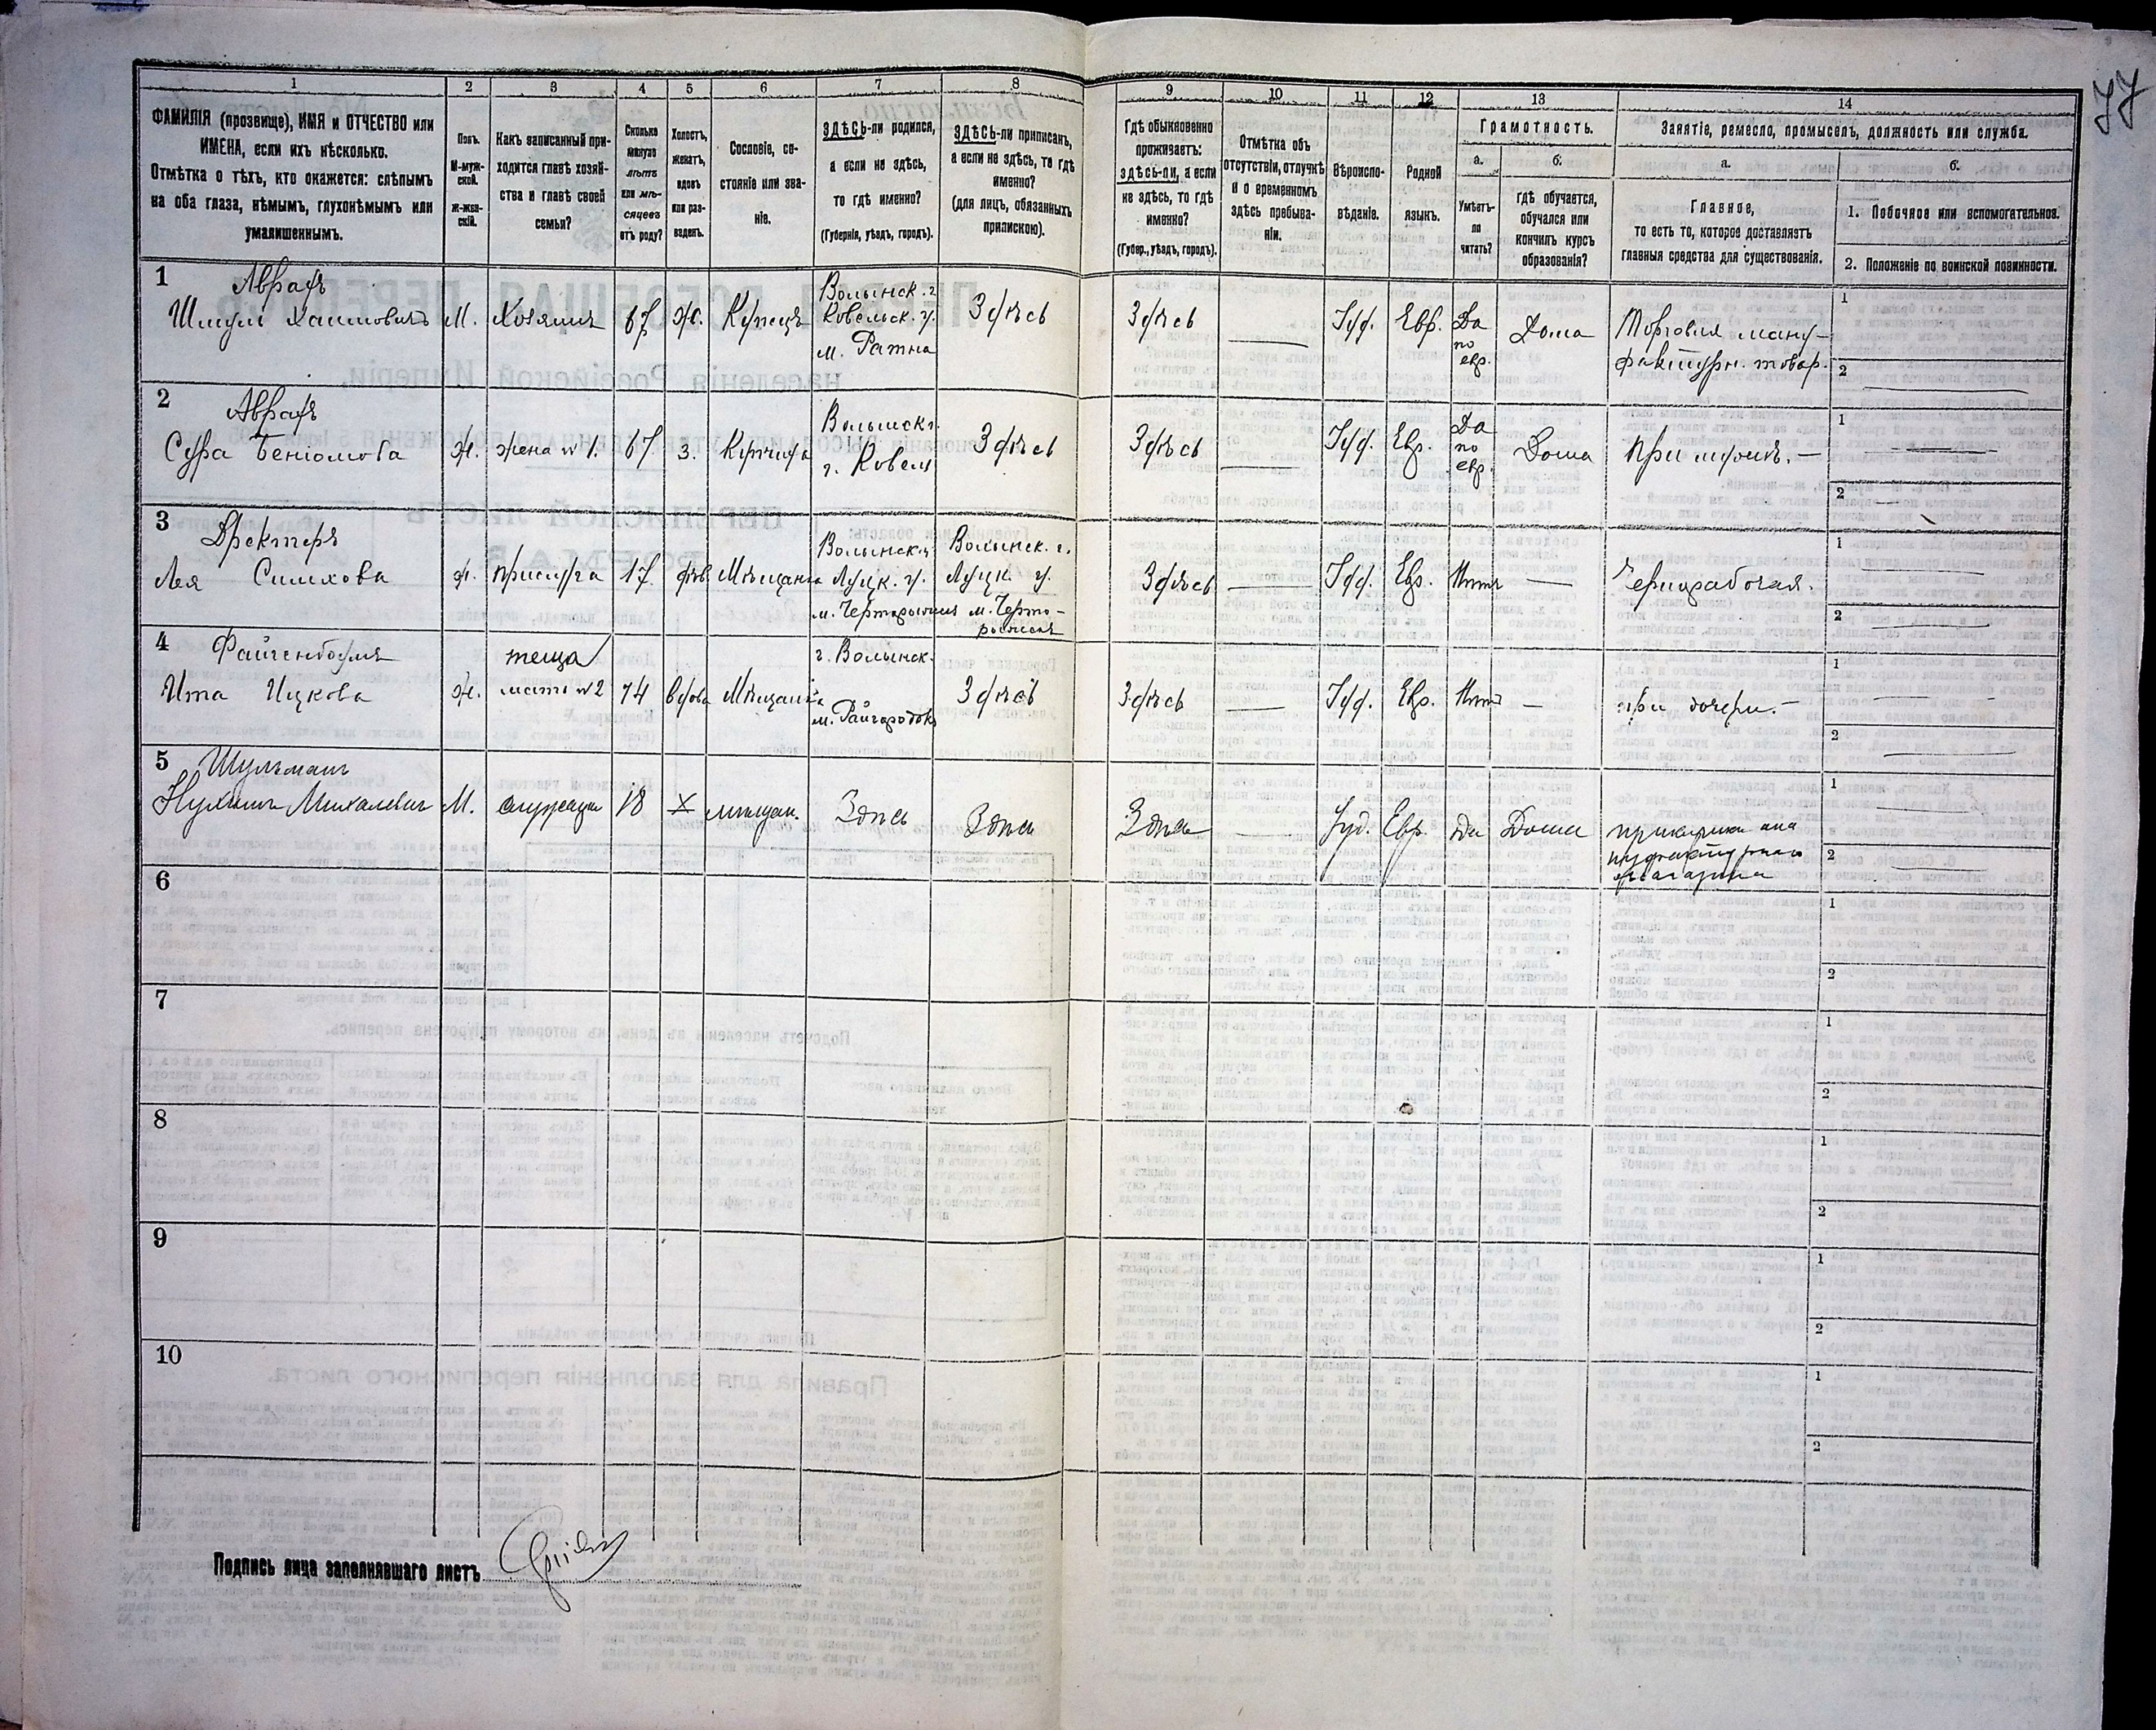 77
1 2 3 4 5 6 7 8 9 10 11 12 13 14
ФАМИЛІЯ (прозвище), ИМЯ и ОТЧЕСТВО или
ИМЕНА, если ихъ нѣсколько.
Отмѣтка о тѣхъ, кто окажется: слѣпымъ
на оба глаза, нѣмымъ, глухонѣмымъ или
умалишеннымъ.
Полъ.
М-муж-
ской.
Ж-жен-
скій.
Какъ записанный при-
ходится главѣ хозяй-
ства и главѣ своей
семьи?
Сколько
минуло
лѣтъ
или мѣ-
сяцевъ
отъ роду?
Холостъ,
женатъ,
вдовъ
или раз-
веденъ.
Сословіе, со-
стояніе или зва-
ніе.
ЗДѢСЬ-ли родился,
а если не здѣсь,
то гдѣ именно?
(Губернія, уѣздъ, городъ).
ЗДѢСЬ-ли приписанъ,
а если не здѣсь, то гдѣ
именно?
(для лицъ, обязанныхъ
припискою).
Гдѣ обыкновенно
проживаетъ:
здѣсь-ли, а если
не здѣсь, то гдѣ
именно?
(Губер., уѣздъ, городъ).
Отмѣтка объ
отсутствіи, отлучкѣ
и о временномъ
здѣсь пребыва-
ніи.
Вѣроиспо-
вѣданіе.
Родной
языкъ.
Грамотность.
а.
Умѣетъ-
ли
читать?
б.
гдѣ обучается,
обучался или
кончилъ курсъ
образованія?
Занятіе, ремесло, промыселъ, должность или служба.
а.
Главное,
то есть то, которое доставляетъ
главныя средства для существованія.
б.
1. Побочное или вспомогательное.
2. Положеніе по воинской повинности.
1
Аврахъ
Шмуль Хаимовичъ М. Хозяинъ 67 ж. Купецъ
Волынск. г.
Ковельск. у.
м. Ратна
Здѣсь Здѣсь — Іуд. Евр.
Да
по
евр.
Дома
Торговля ману-
фактурн. товар.
1
2
2
Аврахъ
Сура Беніомова ж. жена № 1. 67 з. Купчиха
Волынск г.
г. Ковель
Здѣсь Здѣсь — Іуд. Евр.
Да
по
евр.
Дома
При мужѣ. —
1
2
3
Дректеръ
Лея ж. прислуга 17 дѣв. Мѣщанка
Волынск. г.
Луцк. у.
м. Черторыйск
Волынск. г.
Луцк. у.
м. Черто-
рыйскъ
Здѣсь — Іуд. Евр. Нѣтъ —
Чернорабочая.
1
2
4
Файгенбаумъ
Ита Ицкова ж.
теща
мать № 2
74 вдова Мѣщанка
г. Волынск.
м. Райгородокъ
Здѣсь Здѣсь — Іуд. Евр. Нѣтъ —
при дочери. —
1
2
5
Шульманъ
Нухимъ Михалевичъ М. служащи 18 Х мѣщан. Здѣсь Здѣсь Здѣсь — Іуд. Евр. да Дома
прикащикъ
магазина
1
2
6
1
2
7
1
2
8
1
2
9
1
2
10
1
2
Подпись лица заполнявшаго листъ